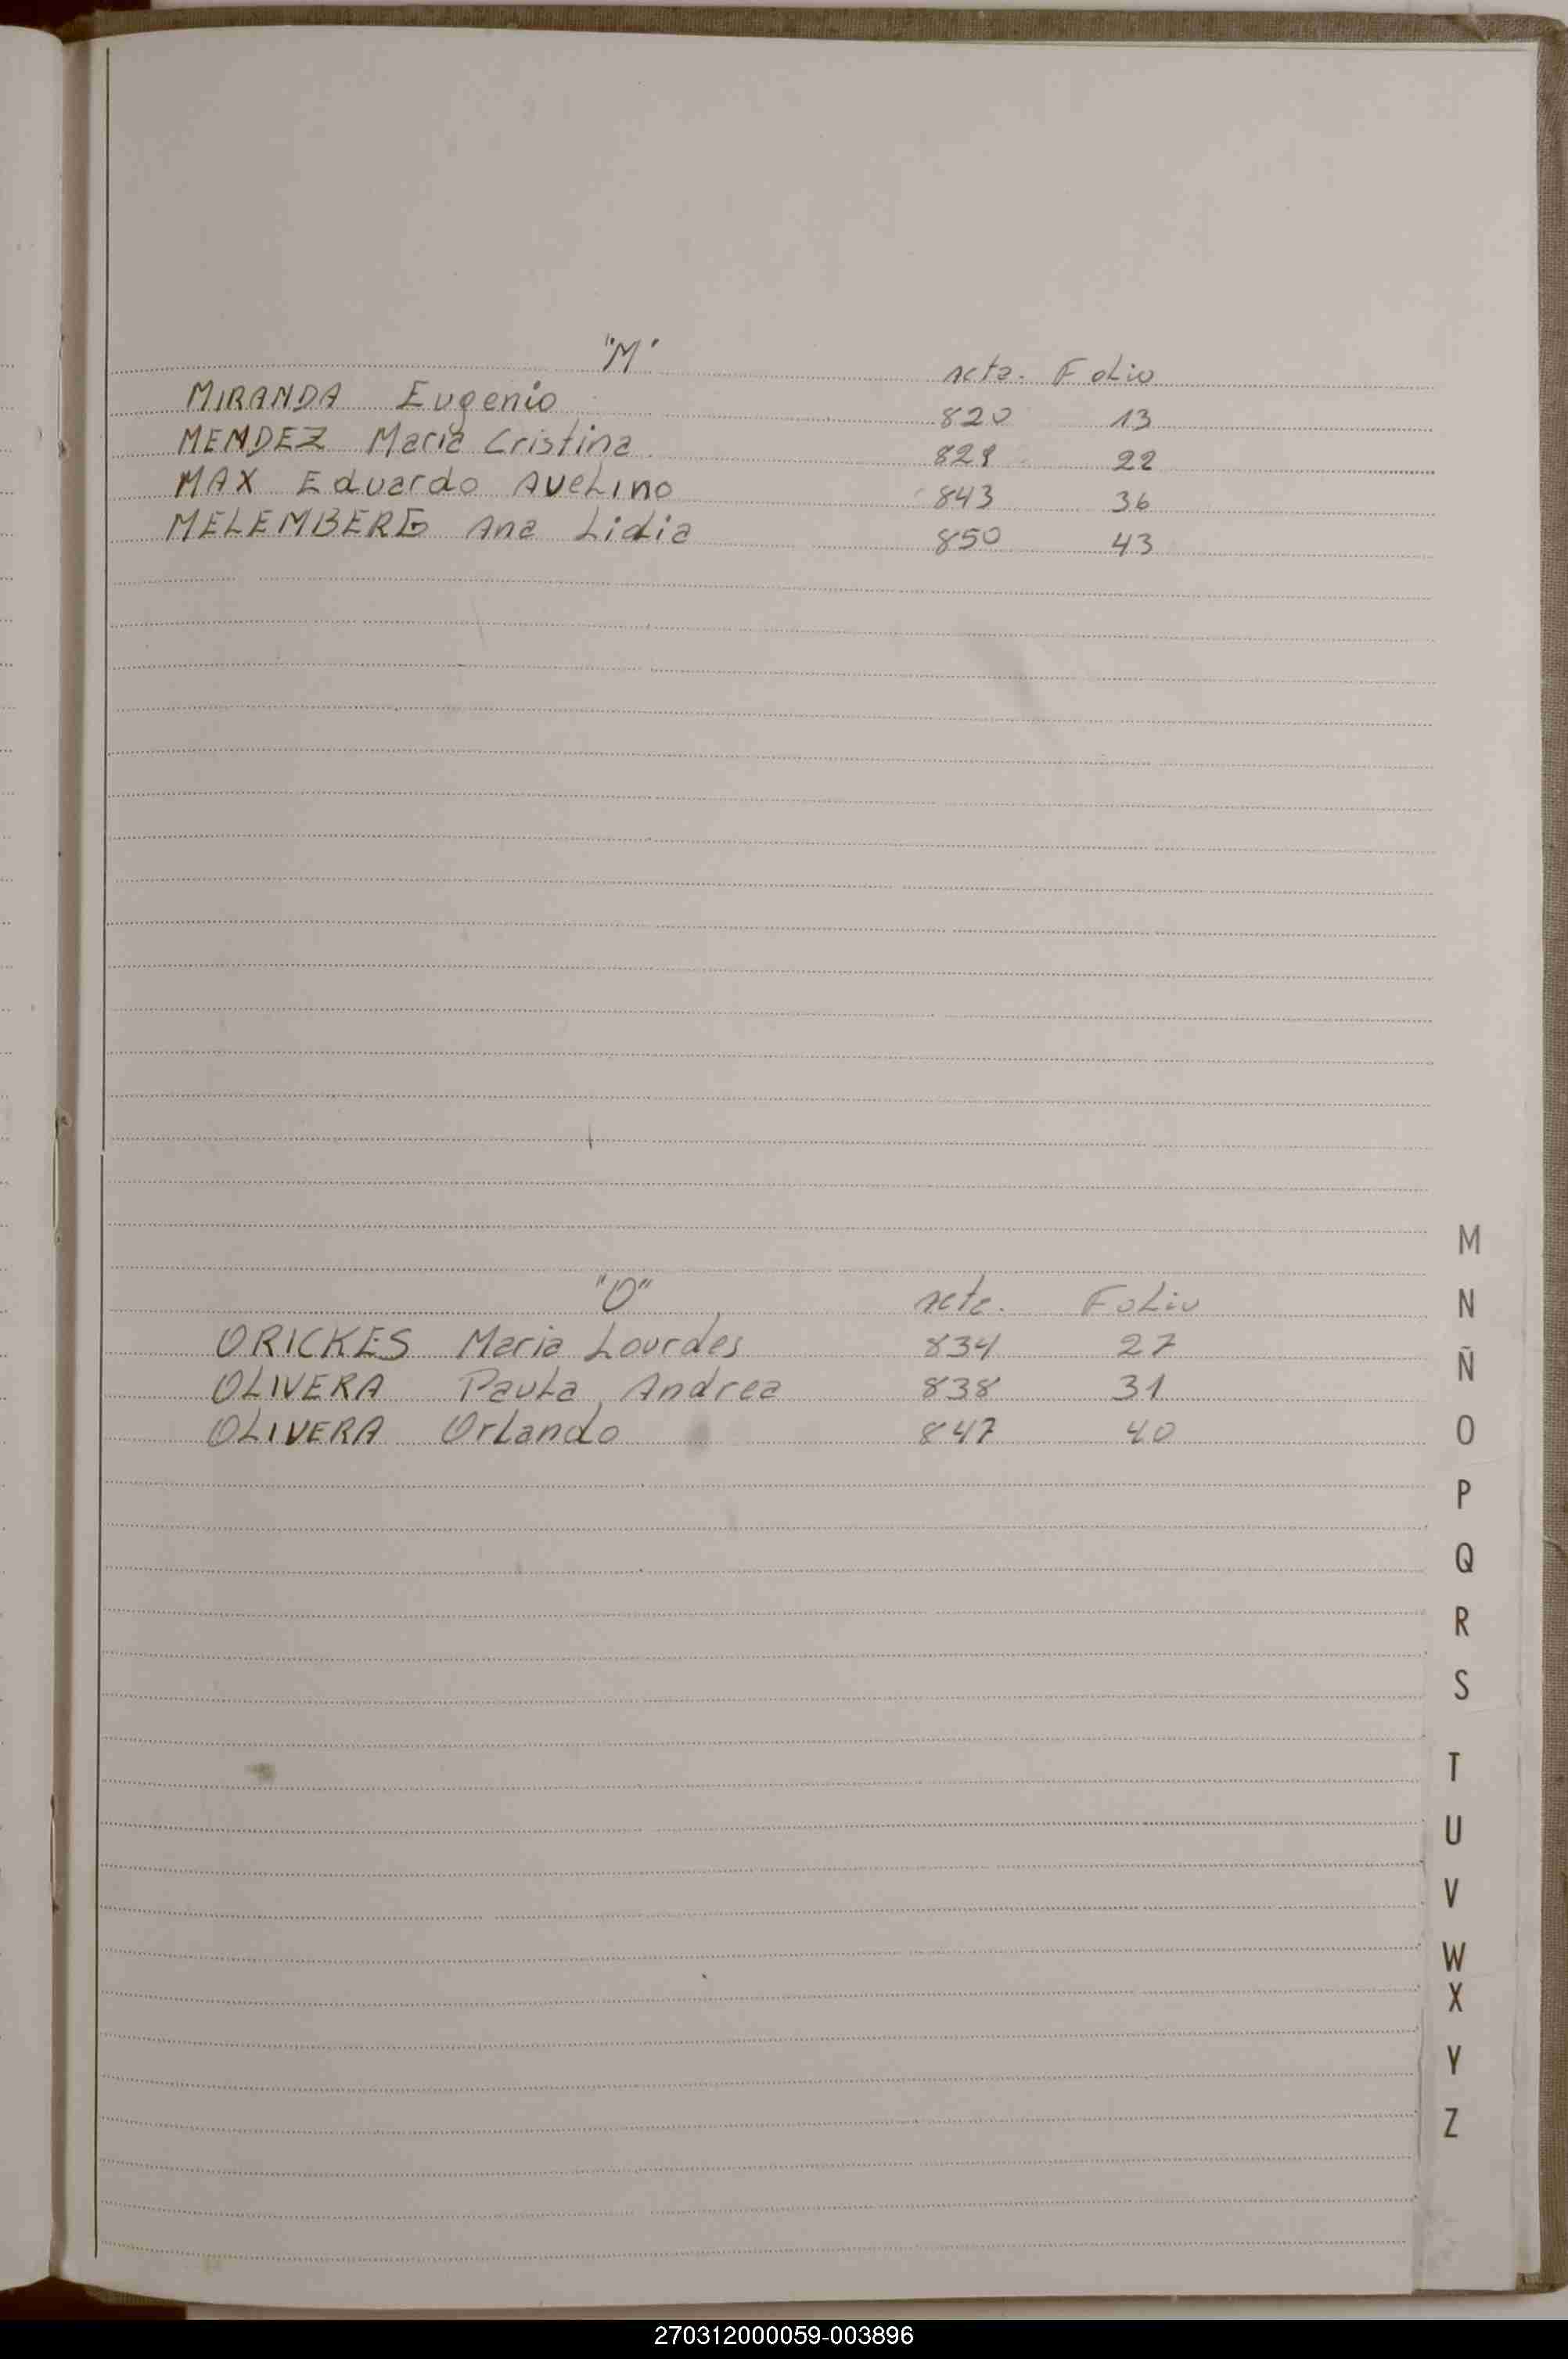 "M"
Acta. Folio
MIRANDA Eugenio 820 13
MENDEZ Maria Cristina 829 22
MAX Eduardo Avelino 843 36
MELEMBERG Ana Lidia 850 43
"O" Acta. Folio
ORICKES Maria Lourdes 834 27
OLIVERA Paula Andrea 838 31
OLIVERA Orlando 847 40
M
N
Ñ
O
P
Q
R
S
T
U
V
W
X
Y
Z
270312000059-003896